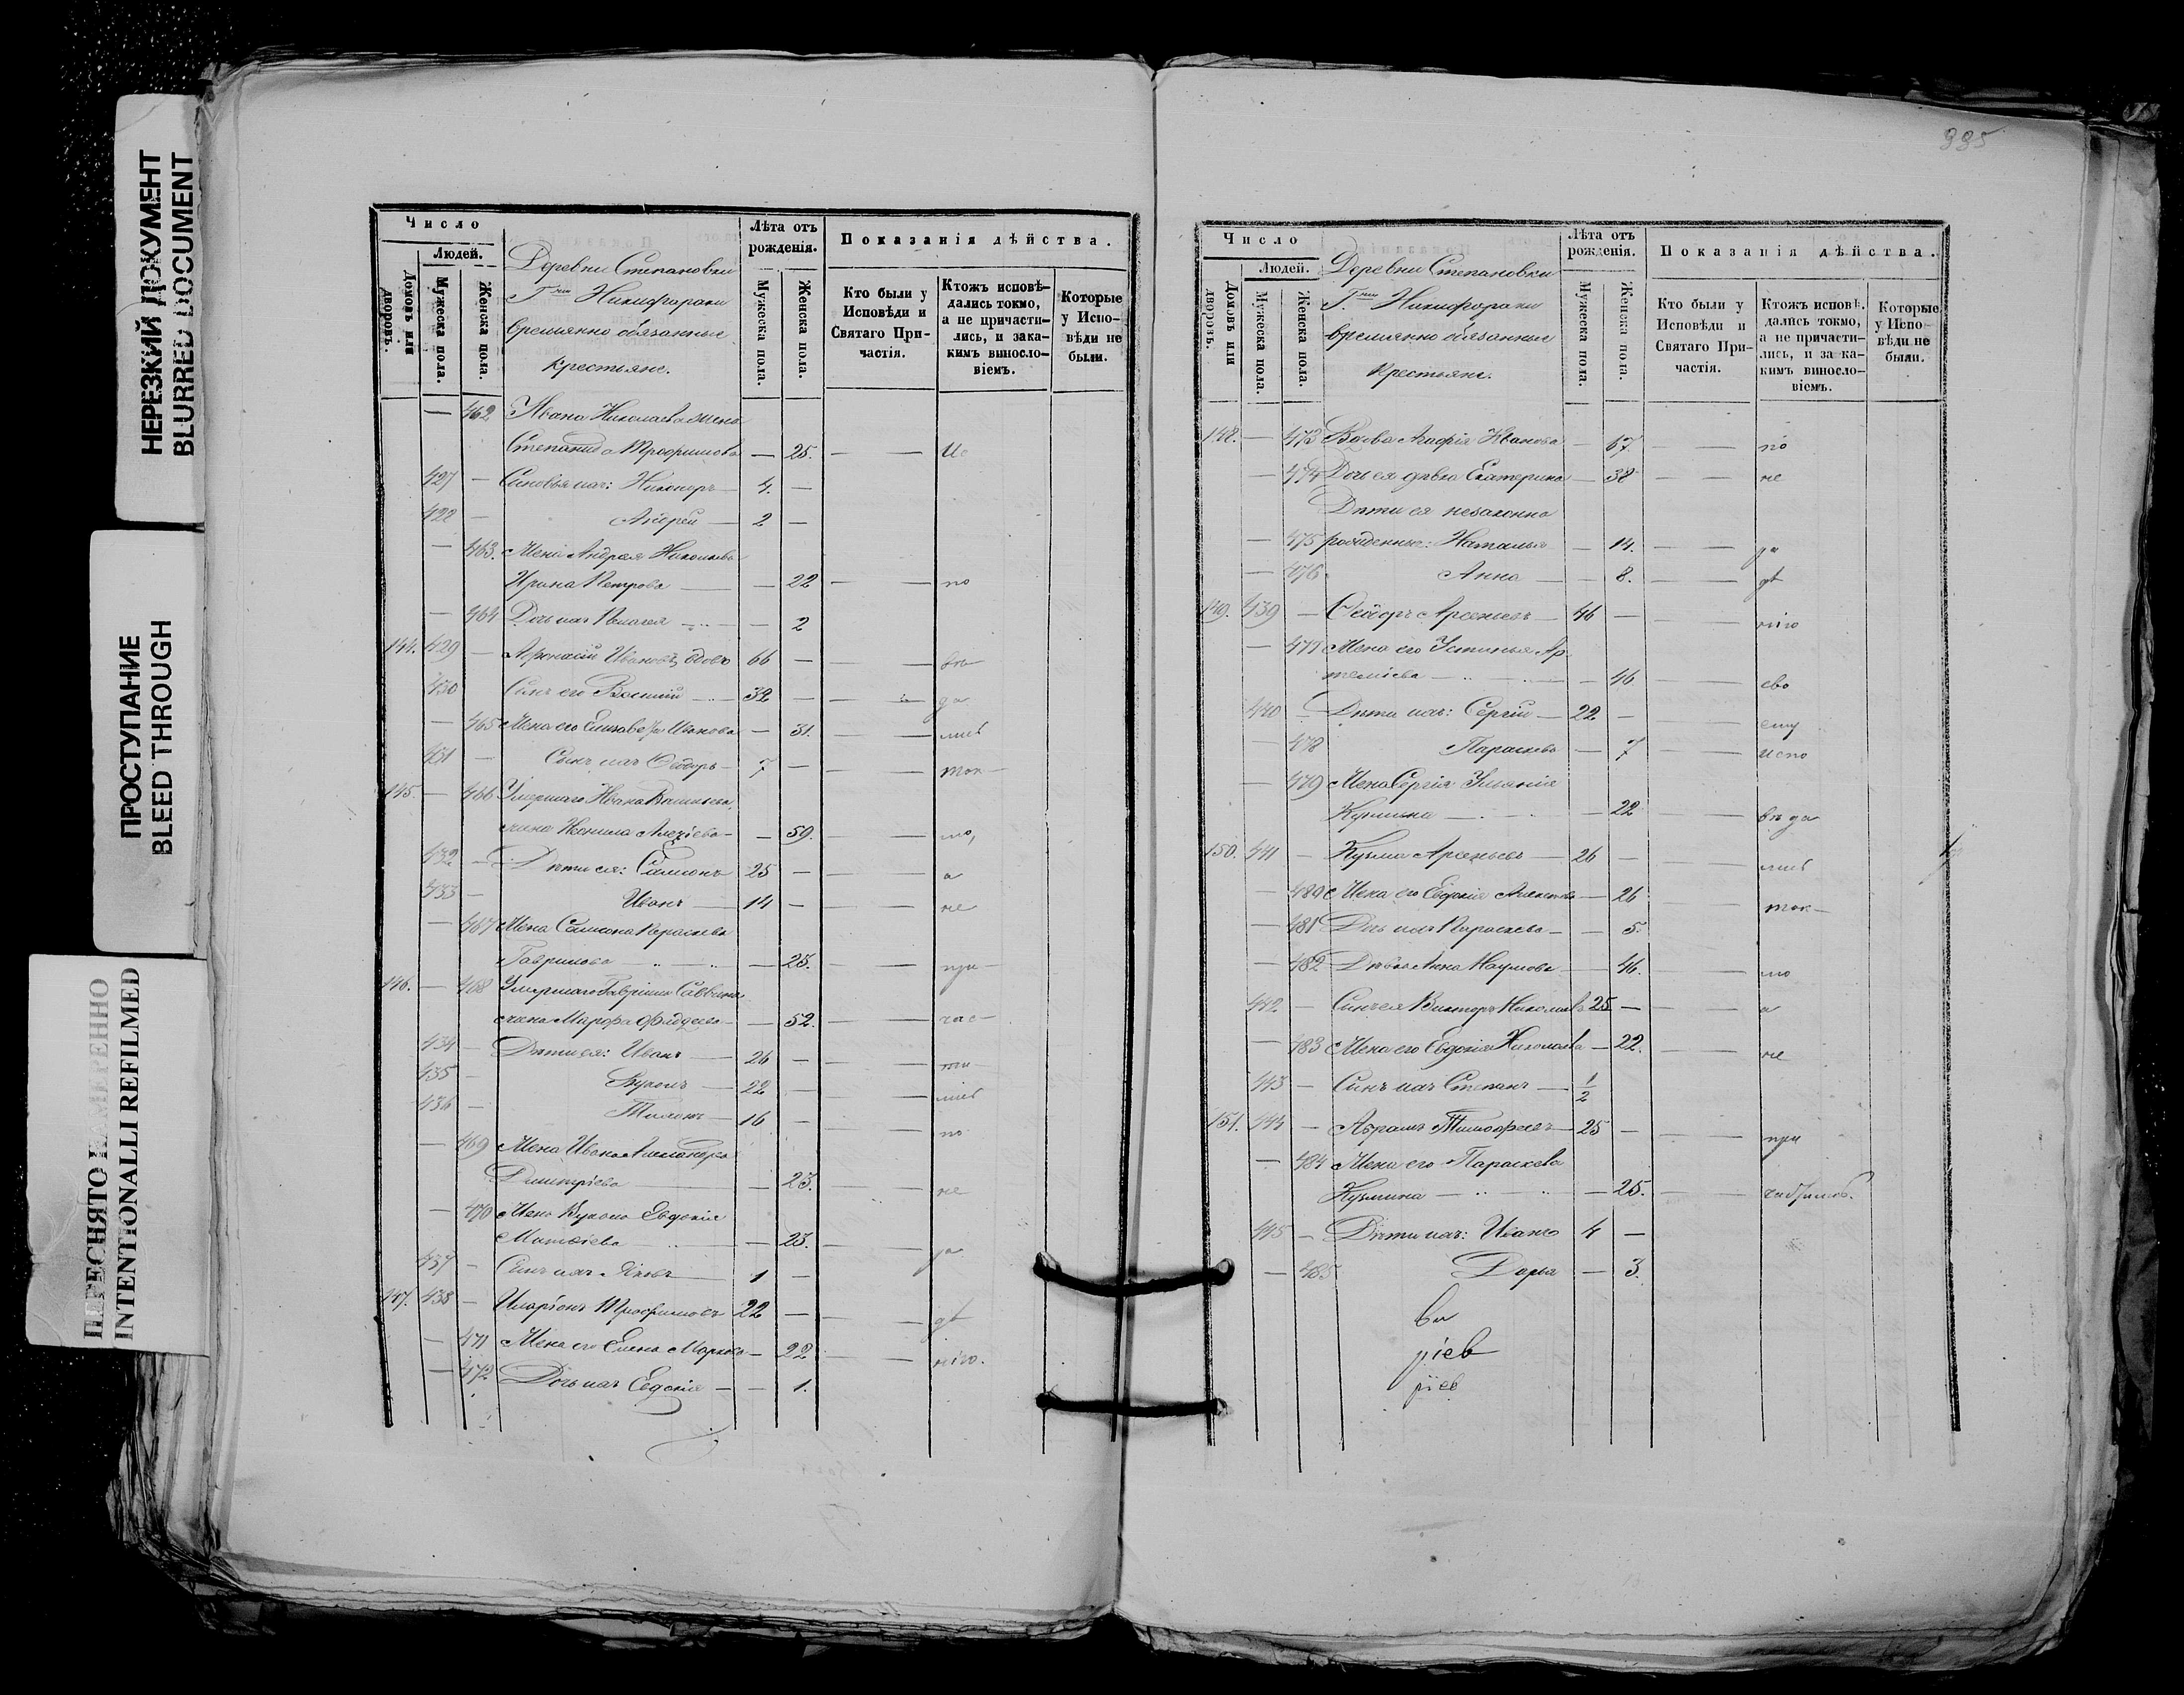 НЕРЕЗКИЙ ДОКУМЕНТ
BLURRED DOCUMENT
ПРОСТУПАНИЕ
BLEED THROUGH
ПЕРЕСНЯТО НАМЕРЕННО
INTENTIONALLI REFILMED
Число
Людей.
Домовъ или дворовъ.
Мужеска пола.
Женска пола.
Деревни Степановки
Г. Никифораки
временно обязанные
крестьяне.
Лѣта отъ рожденія.
Мужеска пола.
Женска пола.
Показанія дѣйства.
Кто были у Исповѣди и Святаго Причастія.
Ктожъ исповѣ-
дались токмо,
а не причасти-
лись, и зака-
кимъ винос­ло-
віемъ.
Которые
у Испо-
вѣди не
были.
— 462 Ивана Николаева жена
Степанида Трофимова — 25. — — Ис
427 — Сыновья ихъ: Никоноръ — 4. —
428 — Андрей — 2 —
— 463. Жена Андрея Николаева
Ирина Петрова — — 22 — — по
— 464 Дочь ихъ Пелагея — — 2
144. 429 — Афонасій Ивановъ, вдовъ 66 — — — вѣ
430 Сынъ его Василій — 32 — — — да
— 465 Жена его Елисавета Иванова — 31. — — лись
431 — Сынъ ихъ Феодоръ — 7 — — — ток-
145. — 466 Умершаго Ивана Васильева
жена — 59. — — мо,
432 — Дѣти ея: Самсонъ 25 — — — а
433 — Иванъ — 14 — — — не
— 467 Жена Самсона Параскева
Гаврилова — — 25. — — при-
146. — 468 Умершаго Саввина
жена Марфа Фаддеева — — 52. — — час-
434 — Дѣти ея: Иванъ — 26 — — — ти-
435 — Вуколъ — 22 — — — лись
436 — Тихонъ — 16 — — — по
— 469 Жена Ивана Александра
Димитріева — — 23. — — не
— 470 Жена Вукола Евдокія
Матвѣева — — 23. — — ра
437 — Сынъ ихъ Яковъ — 1 —
147. 438 — Иларіонъ Трофимовъ 22 — — — дѣ
— 471 Жена его Елена Маркова — 22 — — нію.
— 472 Дочь ихъ Евдокія — — 1.
335
Число
Людей.
Домовъ или дворовъ.
Мужеска пола
Женска пола.
Деревни Степановки
Г. Никифораки
временно обязанные
крестьяне.
Лѣта отъ рожденія.
Мужеска пола.
Женска пола.
Показанія дѣйства.
Кто были у Исповѣди и Святаго Причастія.
Ктожъ исповѣ-
дались токмо,
а не причасти-
лись, и за ка-
кимъ винос­ло-
віемъ.
Которые
у Испо-
вѣди не
были.
148. — 473 Вдова Агафія Иванова — 67. — — по
— 474 Дочь ея дѣвка Екатерина — 38 — — не
Дѣти ея незаконно
— 475 рожденные: Наталья — 14. — — ра
— 476 Анна — — 8. — — дѣ
149. 439 — Феодоръ Арсеньевъ — 46 — — — нію
— 477 Жена его Устинья Ар-
темiева — — 46 — — сво
440 — Дѣти ихъ: Сергій — 22 — — — ему
— 478 Параскева — 7 — — испо
— 479 Жена Сергія Ульянія
Кузмина — — 22 — — вѣда
150. 441 — Кузьма Арсеньевъ — 26 — — — лись
— 480 Жена его Евдокія — 26 — — ток-
— 481 Дочь ихъ Параскева — — 5.
— 482 Дѣвка Анна Наумова — 46. — — мо
442 — Сынъ ея Викторъ Николаевъ 25 — — — а
— 483 Жена его Евдокія Николаева — 22. — — не
443 — Сынъ ихъ Степанъ — 1/2
151. 444 — Абрамъ Тимофеевъ — 25 — — — при
— 484 Жена его Параскева
Кузмина — — 25. — — частились.
445 — Дѣти ихъ: Иванъ 4 —
— 485 Дарья — 3.